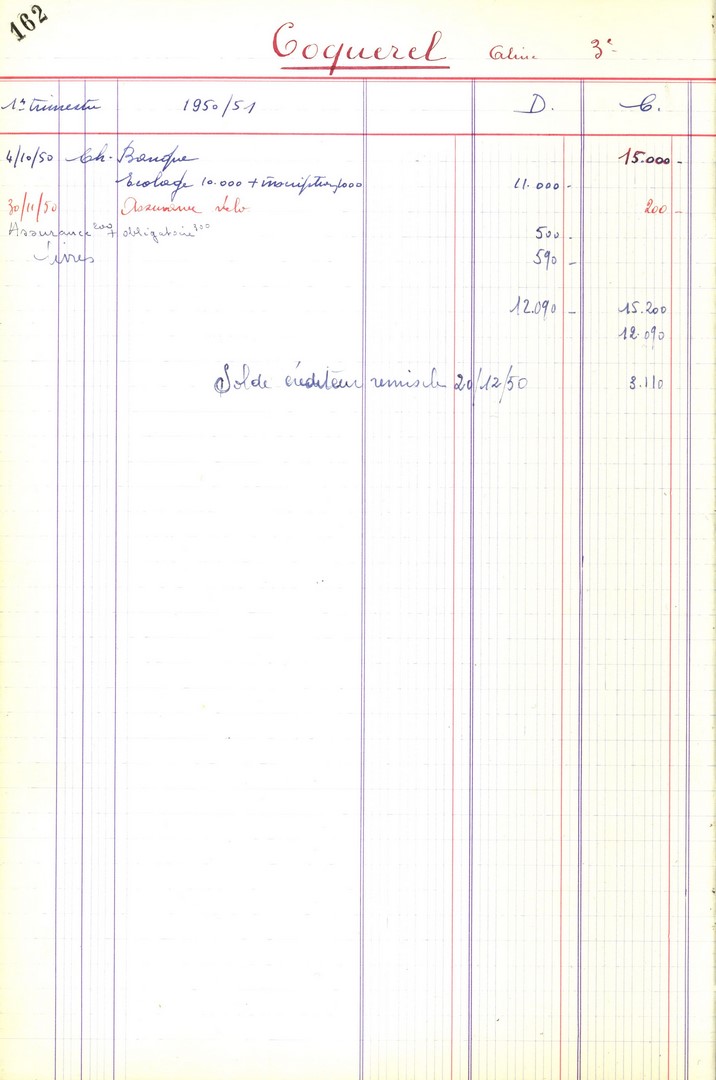 162
Coquerel Céline 3e
1er trimestre 1950/51 D. C.
4/10/50 Ch. Banque 15.000 -
Ecolage 10.000 + inscription 1000 11.000 -
30/11/50 Assurance vélo 200 -
Assurance 200 + obligatoire 300 500 -
Livres 590 -
12.090 - 15.200
12.090
Solde créditeur remis le 20/12/50 3.110